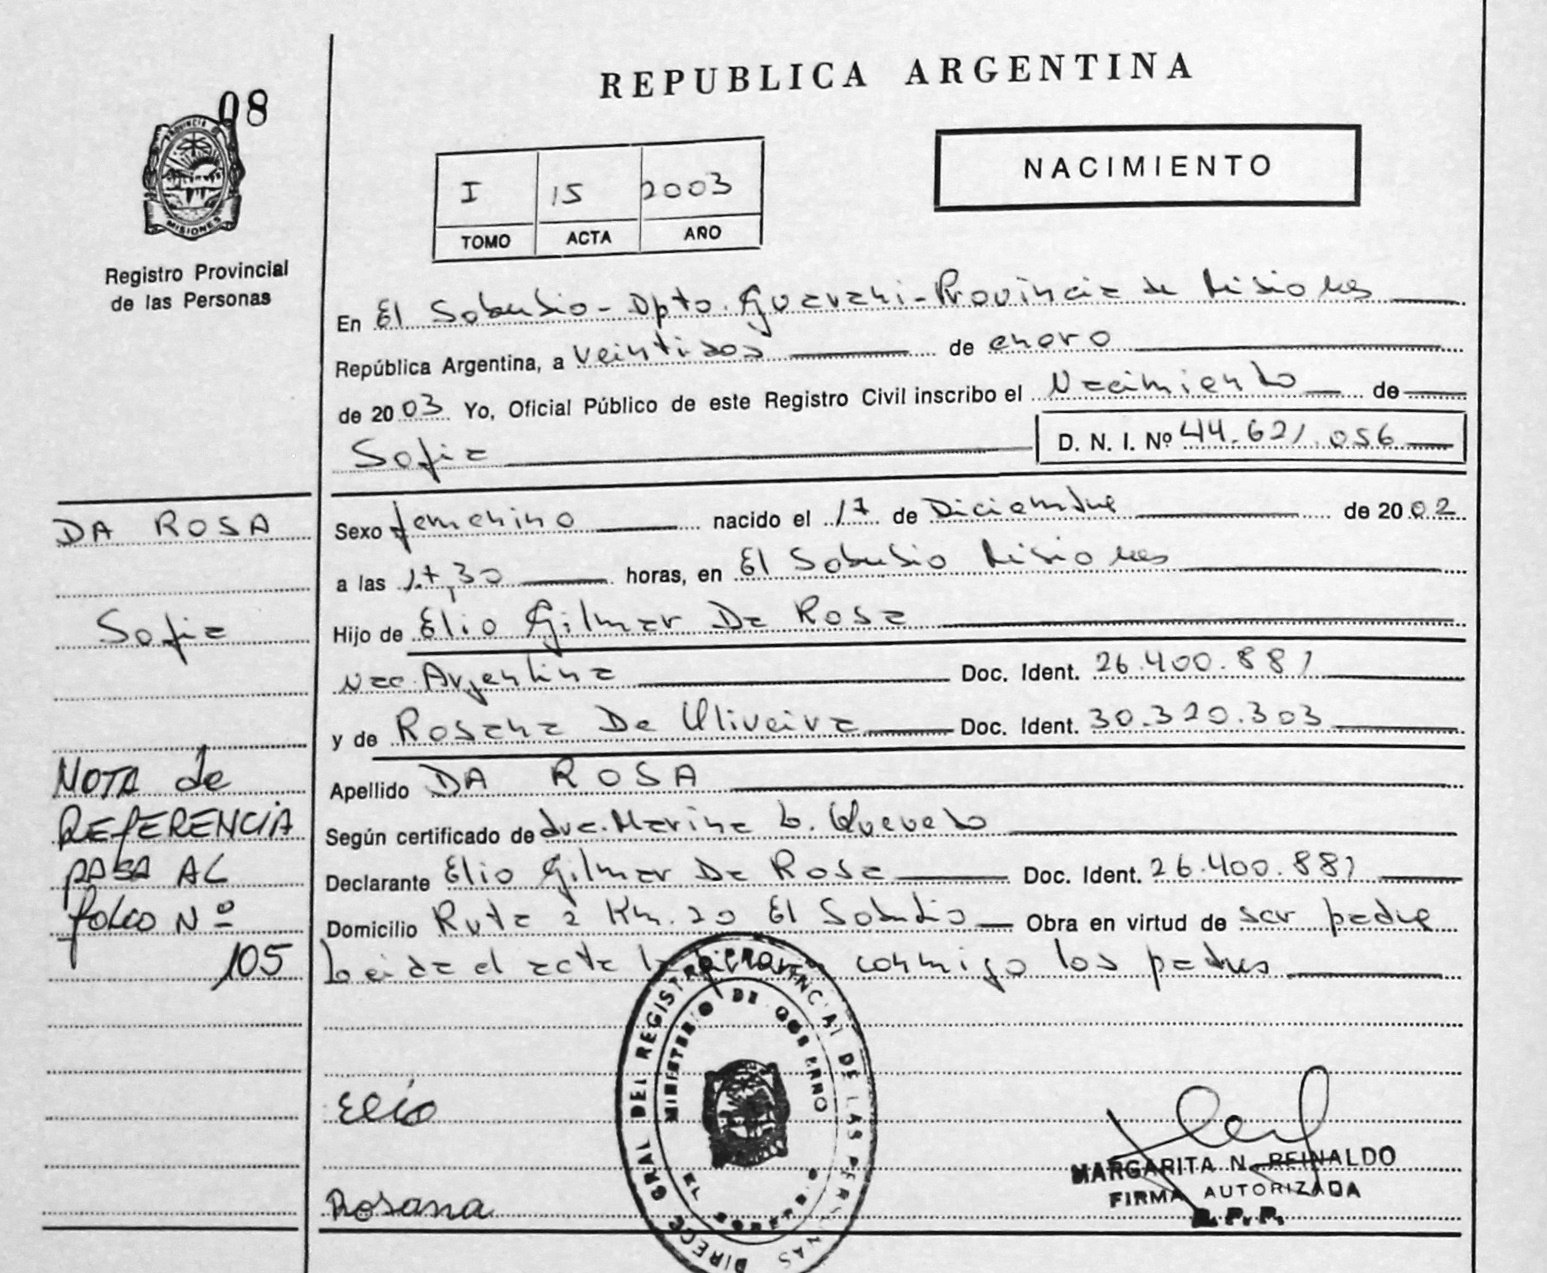 REPUBLICA ARGENTINA
08
PROVINCIA D
MISIONES
Registro Provincial
de las Personas
I 15 2003
TOMO ACTA AÑO
NACIMIENTO
En El Soberbio - Dpto. Guarani - Provincia de Misiones
República Argentina, a veintidos de enero
de 2003 Yo, Oficial Público de este Registro Civil inscribo el Nacimiento de
Sofia D. N. I. Nº 44.621.056
DA ROSA
Sofia
NOTA de
REFERENCIA
PASA AL
folio Nº
105
Sexo femenino nacido el 17 de Diciembre de 2002
a las 17,30 horas, en El Soberbio Misiones
Hijo de Elio Gilmar Da Rosa
Nac. Argentina Doc. Ident. 26.400.881
y de Rosana De Oliveira Doc. Ident. 30.320.303
Apellido DA ROSA
Según certificado de dra. Marina L. Quevedo
Declarante Elio Gilmar Da Rosa Doc. Ident. 26.400.881
Domicilio Ruta 2 Km. 20 El Soberbio Obra en virtud de ser padre
Leida el acta la conmigo los padres
Elio
Rosana
DIRECC GRAL DEL REGISTRO PROVINCIAL DE LAS PERSONAS
MINISTERIO DE GOBIERNO
EL SOBERBIO
MARGARITA N. REINALDO
FIRMA AUTORIZADA
R. P. P.